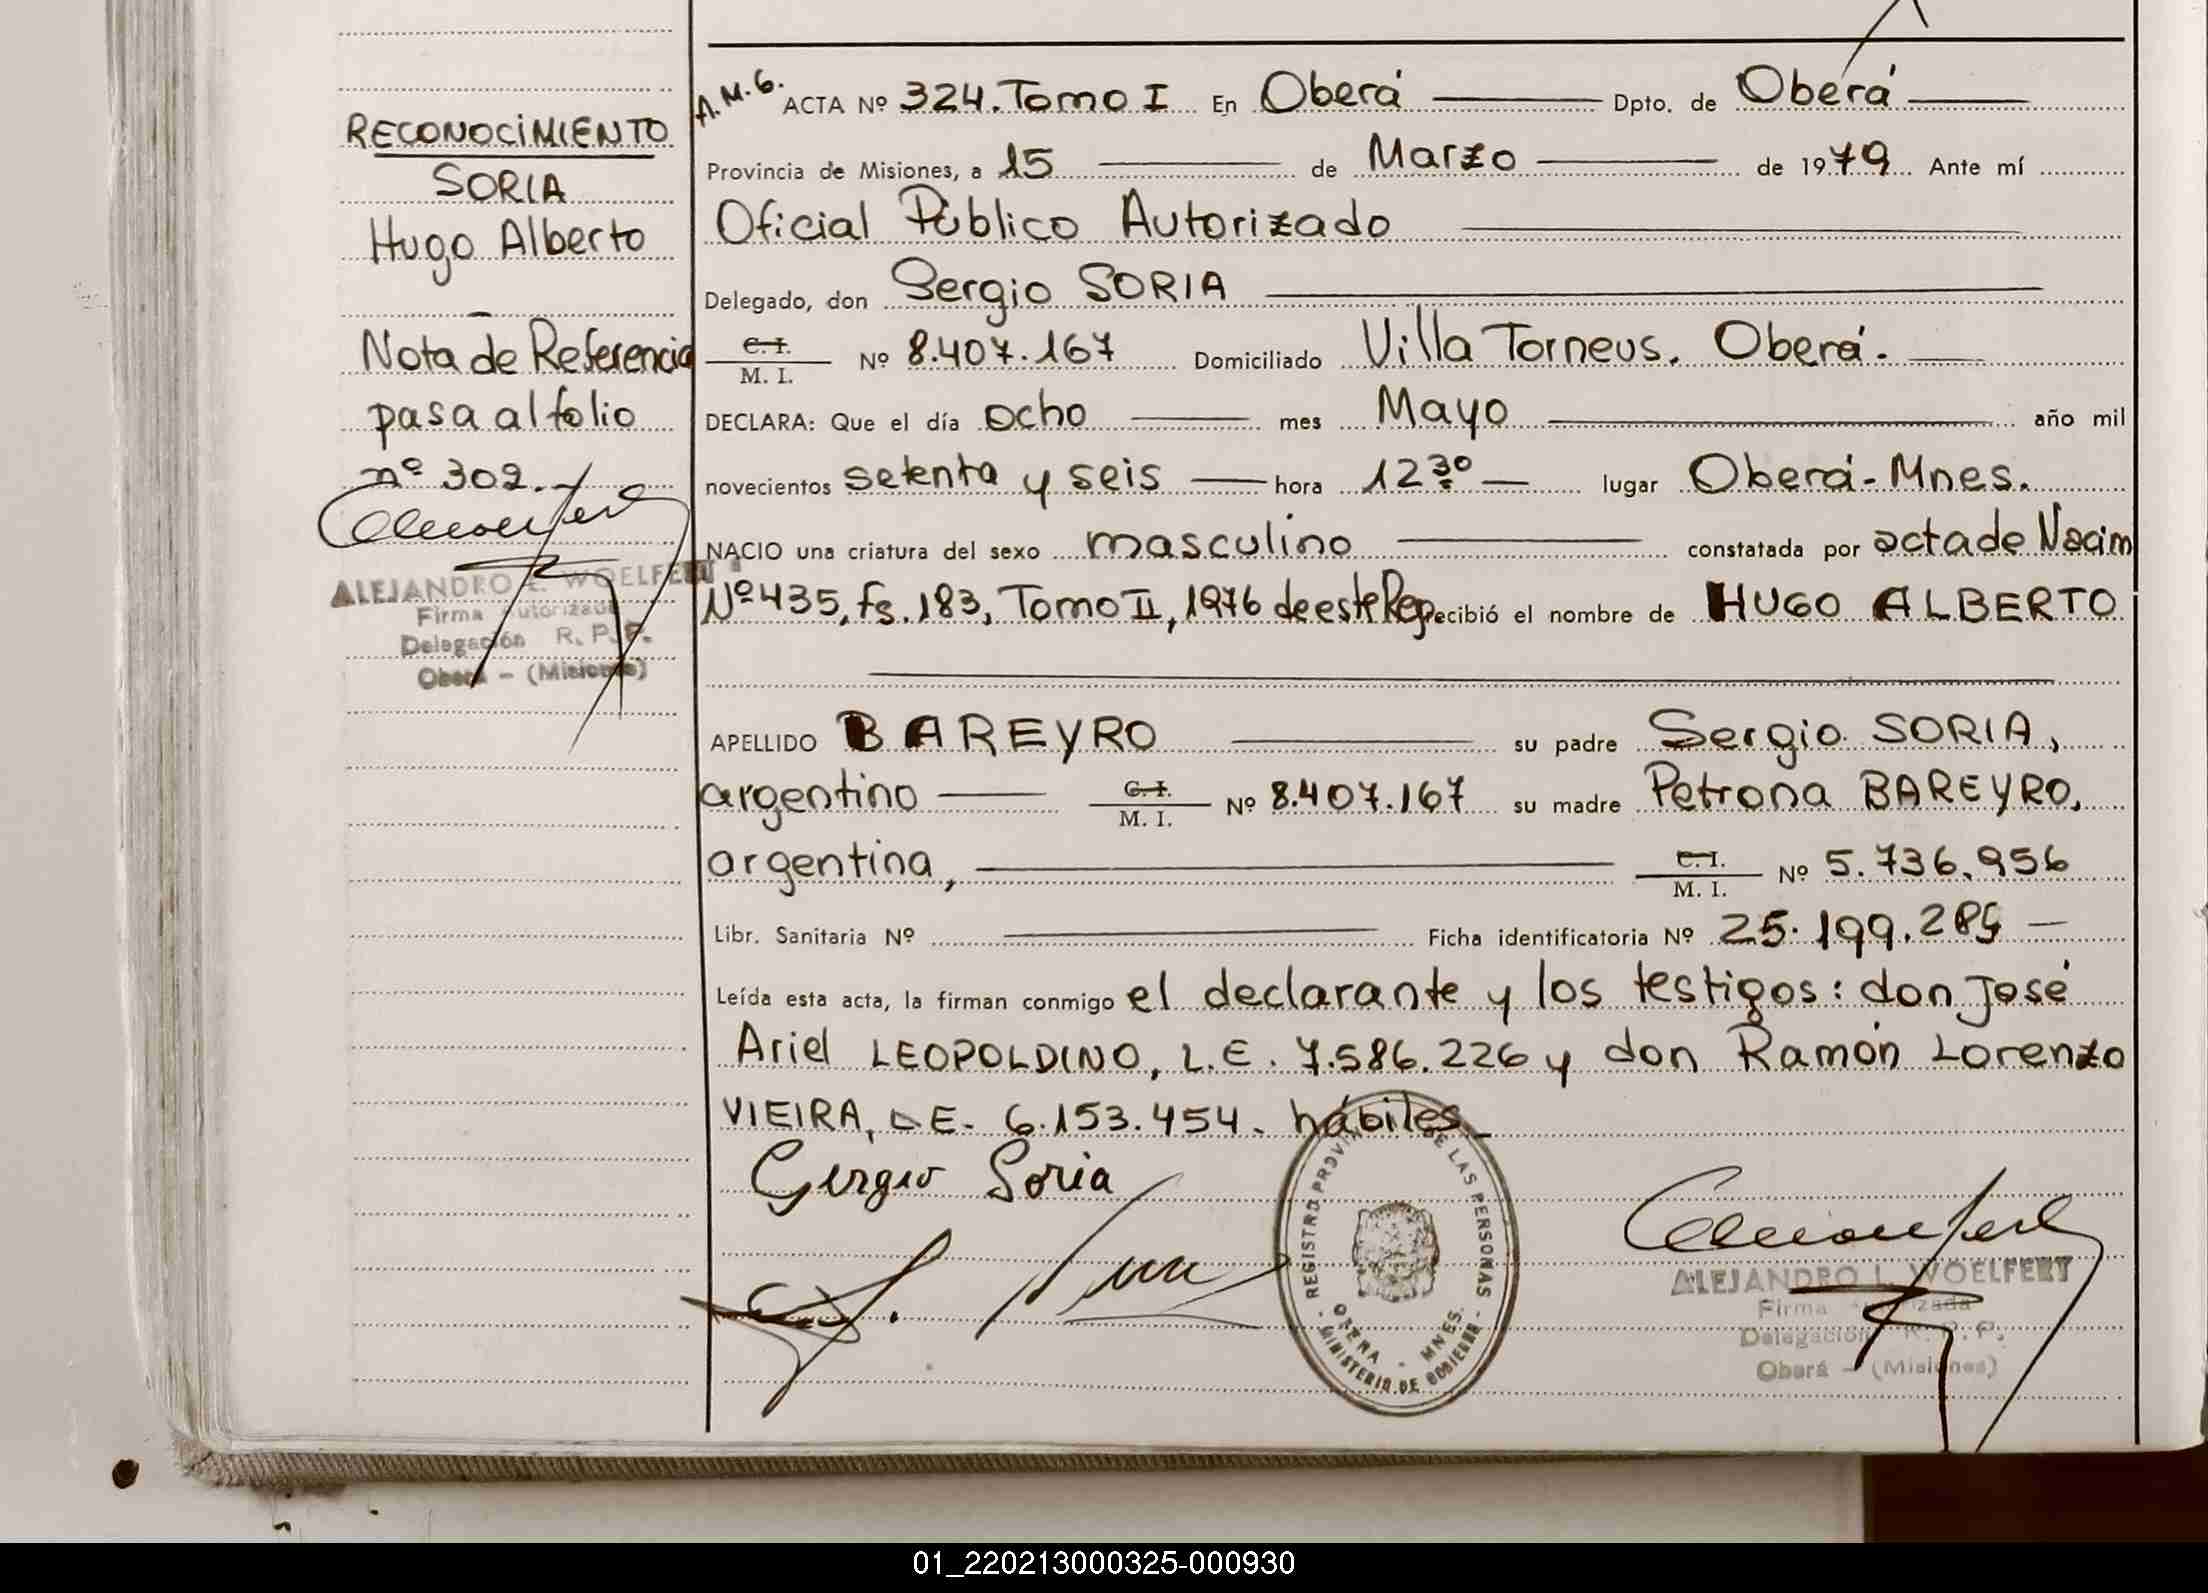 RECONOCIMIENTO
SORIA
Hugo Alberto
Nota de Referencia
pasa al folio
nº 302.-
ALEJANDRO L. WOELFERT
Firma Autorizada
Delegación R. P. P.
Oberá - (Misiones)
A.M.G. ACTA Nº 324. Tomo I En Oberá Dpto. de Oberá
Provincia de Misiones, a 15 de Marzo de 1979 Ante mí
Oficial Público Autorizado
Delegado, don Sergio SORIA
C. I.
M. I. Nº 8.407.167 Domiciliado Villa Torneus. Oberá.
DECLARA: Que el día ocho mes Mayo año mil
novecientos setenta y seis hora 12 30 lugar Oberá-Mnes.
NACIO una criatura del sexo masculino constatada por acta de Nacim
Nº 435, fs. 183, Tomo II, 1976 de este Reg. recibió el nombre de HUGO ALBERTO
APELLIDO BAREYRO su padre Sergio SORIA,
argentino C. I.
M. I. Nº 8.407.167 su madre Petrona BAREYRO,
argentina, C. I.
M. I. Nº 5.736.956
Libr. Sanitaria Nº Ficha identificatoria Nº 25.199.285
Leída esta acta, la firman conmigo el declarante y los testigos: don José
Ariel LEOPOLDINO, L.E. 7.586.226 y don Ramón Lorenzo
VIEIRA, L.E. 6.153.454. hábiles.
Sergio Soria
REGISTRO PROVINCIAL DE LAS PERSONAS
OBERA - MNES.
MINISTERIO DE GOBIERNO
ALEJANDRO L. WOELFERT
Firma Autorizada
Delegación R. P. P.
Oberá - (Misiones)
01_220213000325-000930